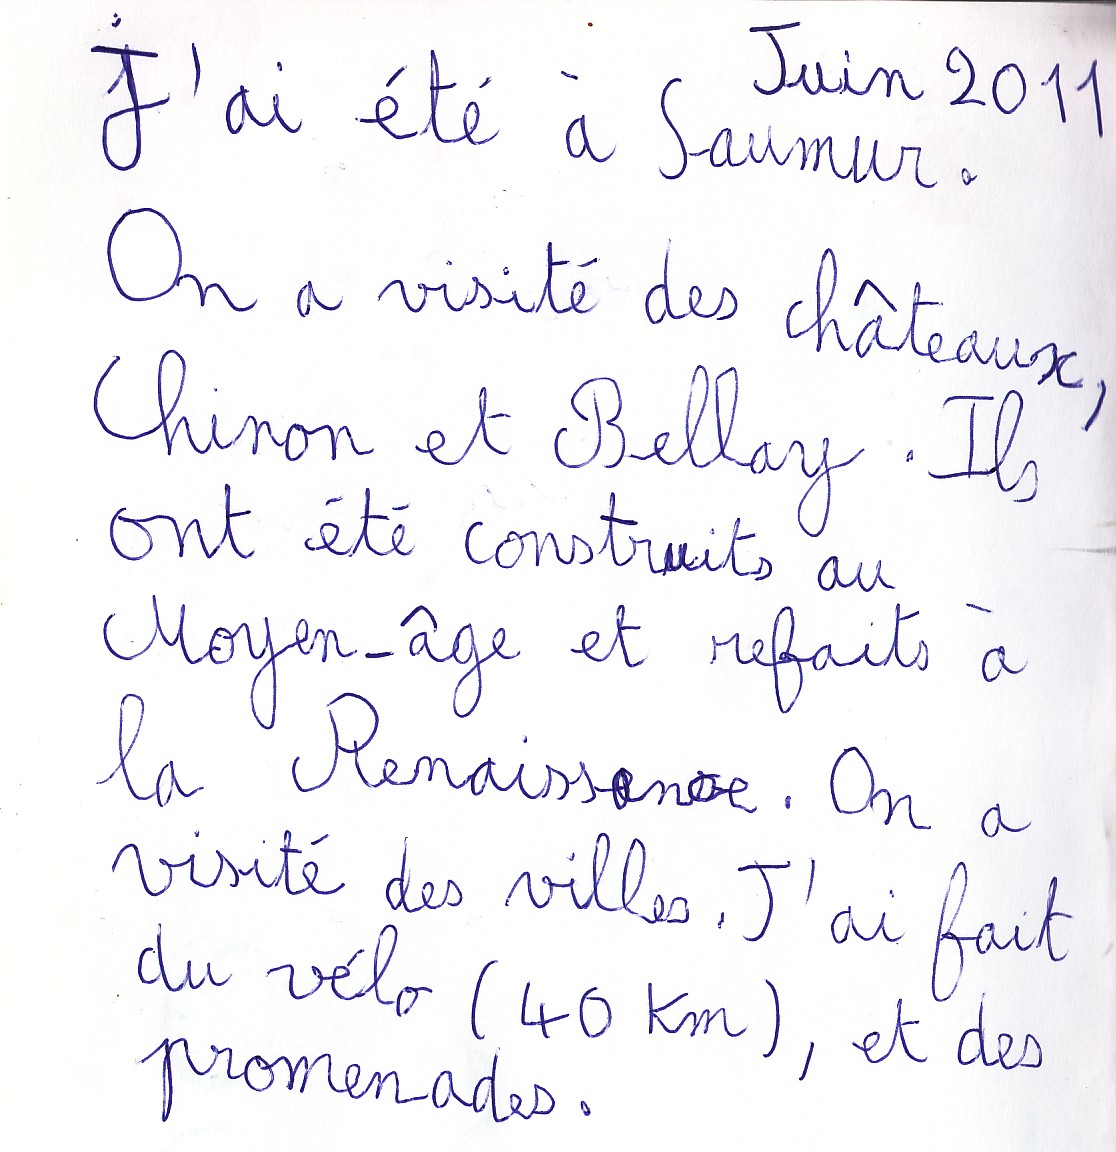 Juin 2011
J'ai été à Saumur.
On a visité des châteaux,
Chinon et Bellay. Ils
ont été construits au
Moyen-âge et refaits à
la Renaissance. On a
visité des villes. J'ai fait
du vélo (40 km), et des
promenades.